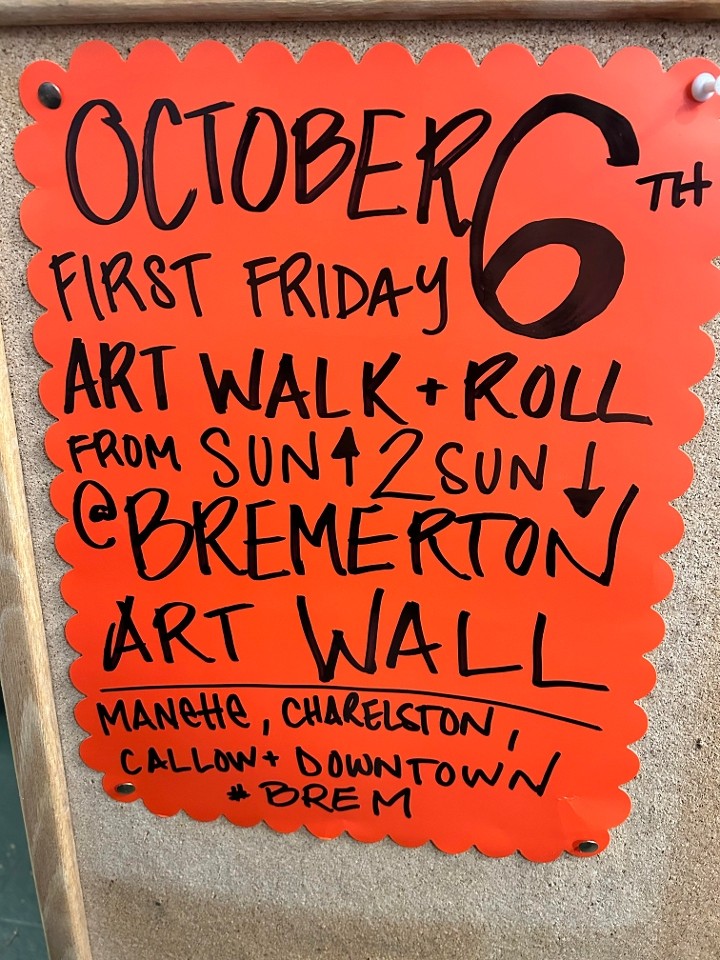 OCTOBER 6TH
FIRST FRIDAY
ART WALK + ROLL
FROM SUN↑ 2 SUN ↓
@BREMERTON
ART WALL
MANETTE, CHARELSTON,
CALLOW + DOWNTOWN
#BREM